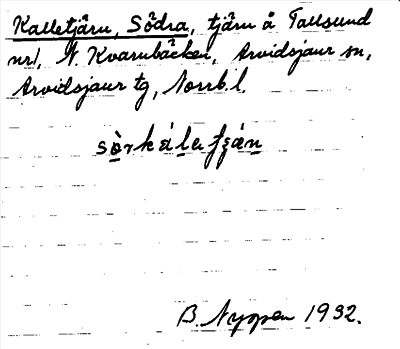 Kalletjärn, Södra, tjärn å Tallsund
nr 1, N. Kvarnbäcken, Arvidsjaur sn,
Arvidsjaur tg, Norrb. l.
B. Nyppen 1932.